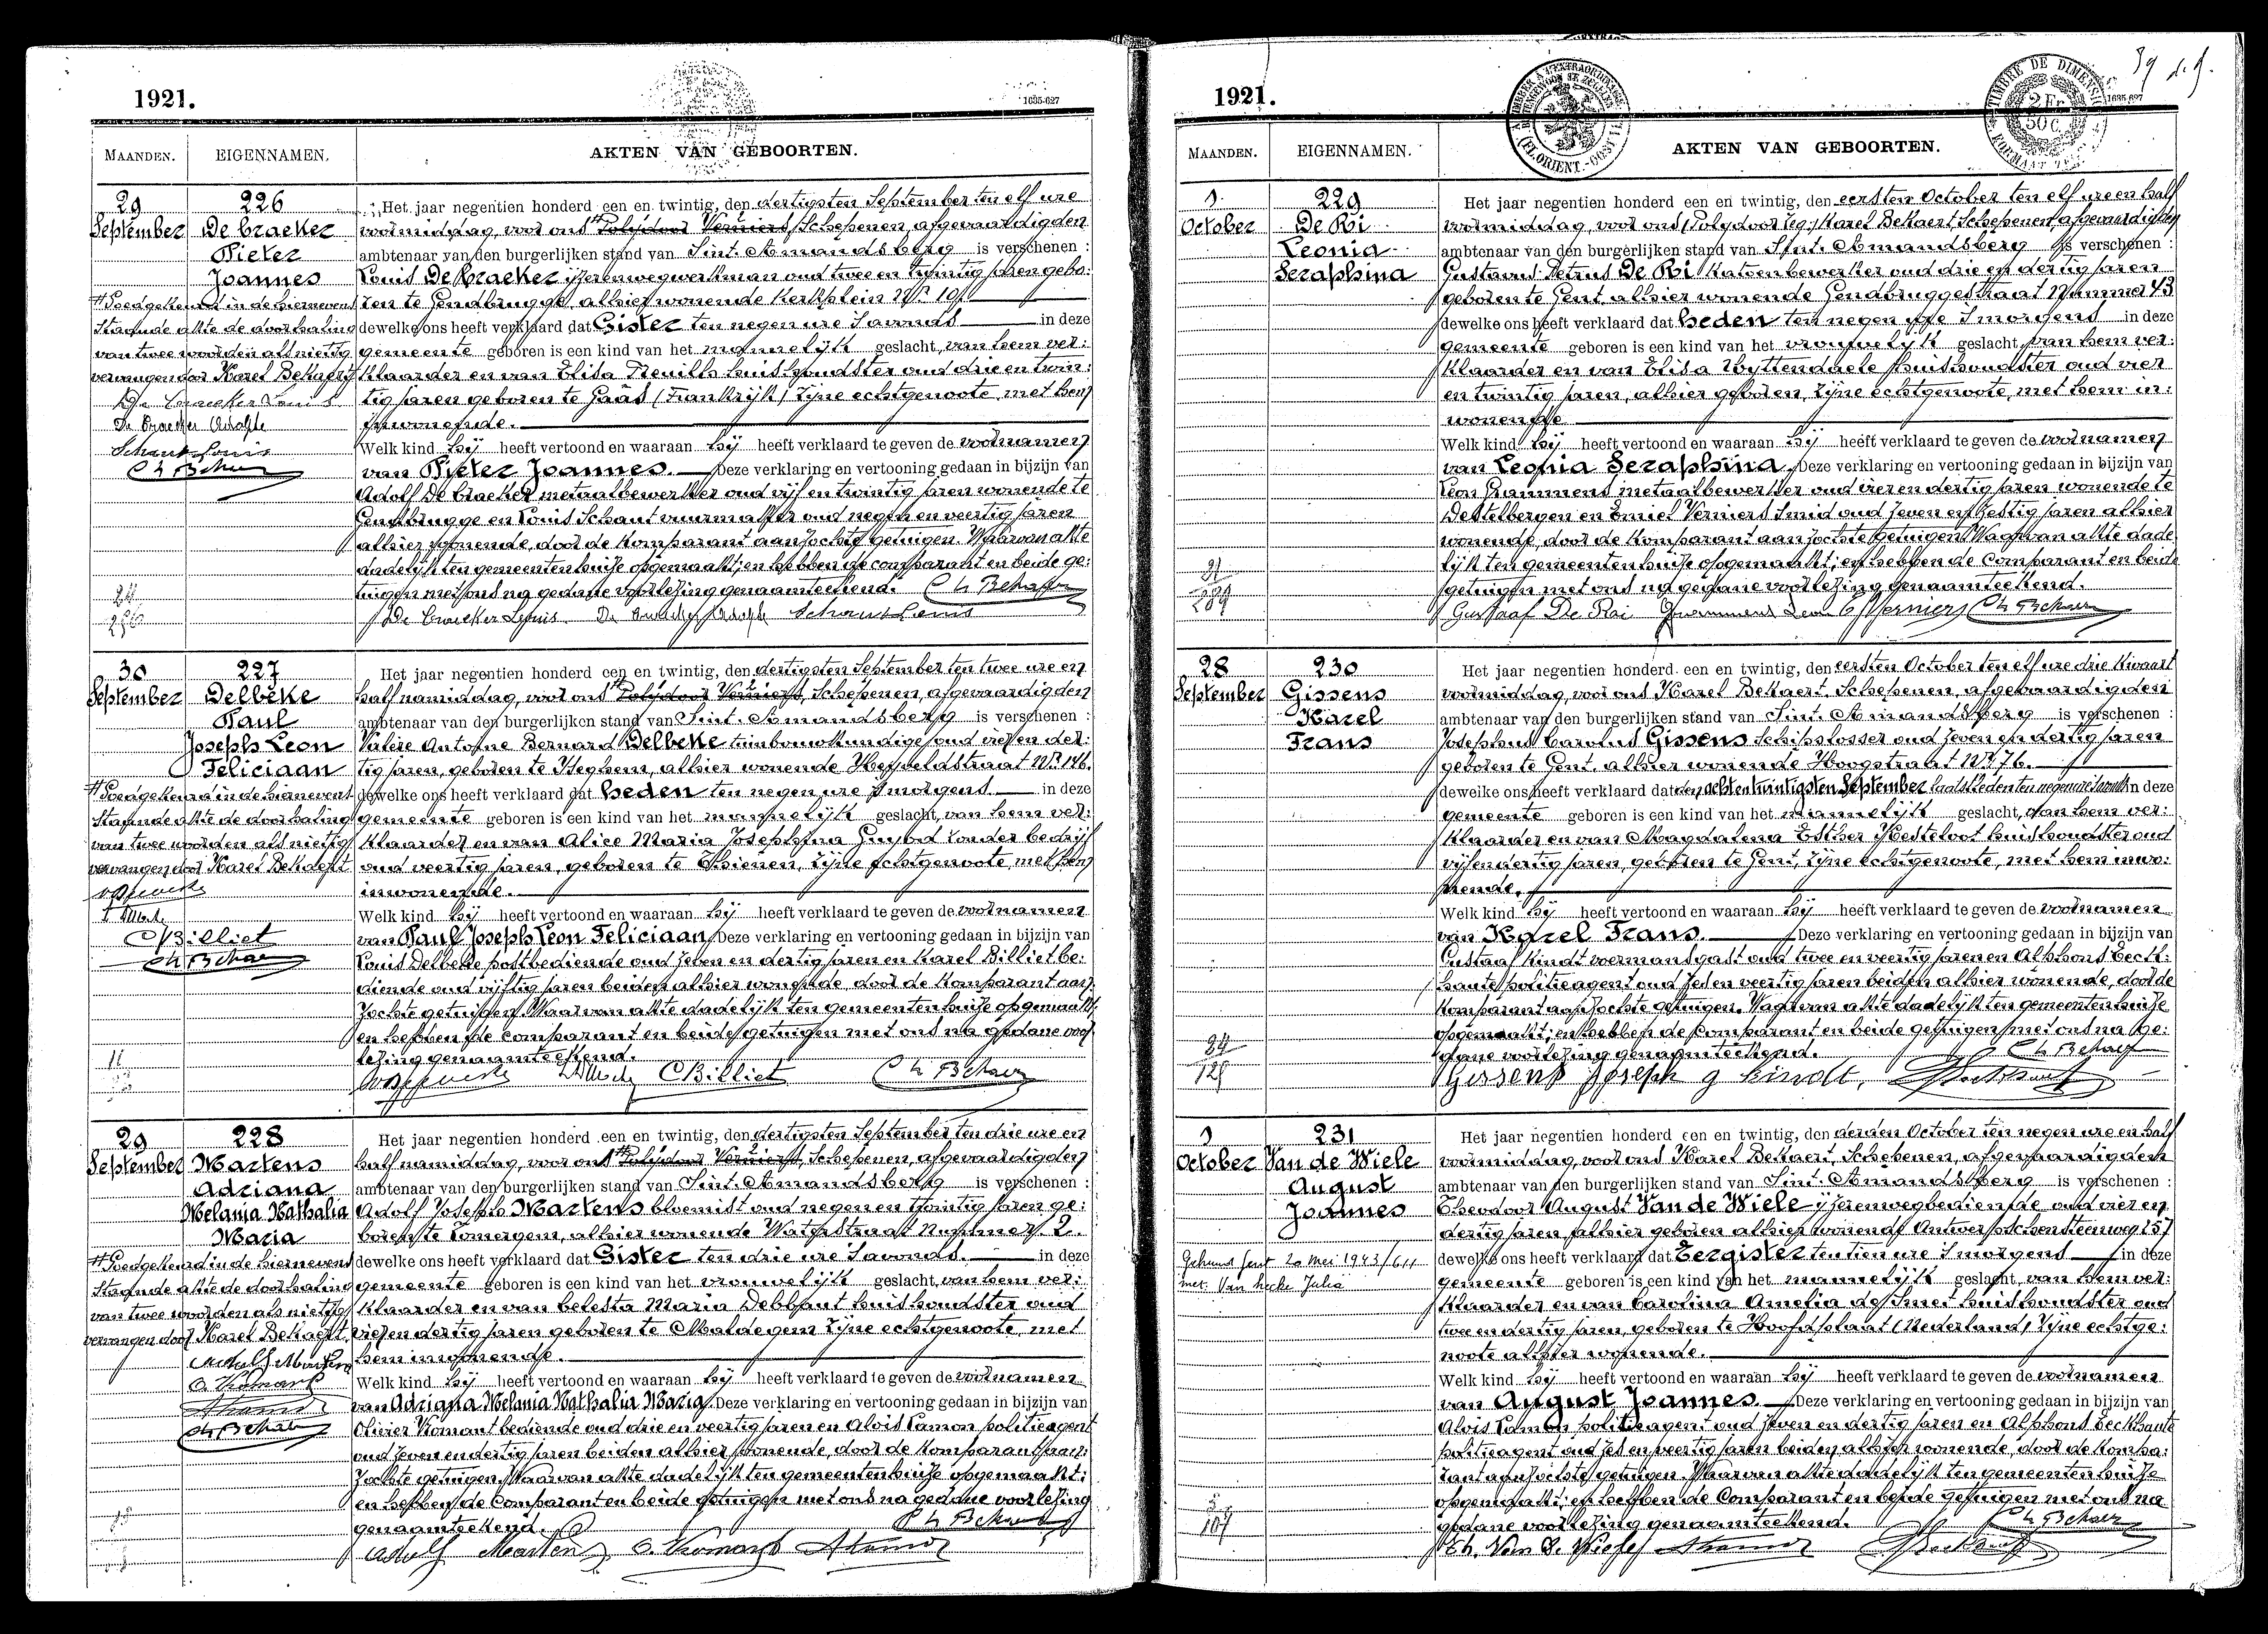 1921.
1635-627
MAANDEN.
EIGENNAMEN.
AKTEN VAN GEBOORTEN.
29
September
226
De Craeker
Pieter
Joannes
Het jaar negentien honderd een en twintig, den dertigsten September ten elf ure
voormiddag, voor ons Polijdoor Verniers, Schepenen, afgevaardigden
ambtenaar van den burgerlijken stand van Sint-Amandsberg is verschenen :
Louis De Craeker ijzerenwegwerkman oud twee en twintig jaren gebo:
ren te Gendbrugge, alhier wonende Kerkplein Nr 10
dewelke ons heeft verklaard dat Gister ten negen ure 's avonds in deze
gemeente geboren is een kind van het mannelijk geslacht, van hem ver:
klaarder en van Elisa huishoudster oud drie en twin:
tig jaren geboren te (Frankrijk) zijne echtgenoote, met hem
inwonende.
Welk kind hij heeft vertoond en waaraan hij heeft verklaard te geven de voornamen
van Pieter Joannes. Deze verklaring en vertooning gedaan in bijzijn van
Adolf De Craeker metaalbewerker oud vijf en twintig jaren wonende te
Gendbrugge en Louis Schaut vuurmaker oud negen en veertig jaren
alhier wonende, door de komparant aanzochte getuigen. Waarvan akte
dadelijk ten gemeentenhuize opgemaakt; en hebben de comparant en beide ge:
tuigen met ons na gedane voorlezing genaamteekend.
De Craeker Louis De Craeker Adolf Schaut Louis
Goedgekeurd in de hiernevens
staande akte de doorhaling
van twee woorden als nietig
vervangen door Karel Bekaert
De Craeker Louis
De Craeker Adolf
Schaut Louis
30
September
227
Delbeke
Paul
Joseph Leon
Feliciaan
Het jaar negentien honderd een en twintig, den dertigsten September ten twee ure en
half namiddag, voor ons Polijdoor Verniers, Schepenen, afgevaardigden
ambtenaar van den burgerlijken stand van Sint-Amandsberg is verschenen :
Valère Antoine Bernard Delbeke tuinbouwkundige oud vier en der:
tig jaren, geboren te Iseghem, alhier wonende Heiveldstraat Nr 146.
dewelke ons heeft verklaard dat heden ten negen ure 's morgens in deze
gemeente geboren is een kind van het mannelijk geslacht, van hem ver:
klaarder en van Alice Maria Josephina zonder bedrijf
oud veertig jaren, geboren te Thienen, zijne echtgenoote, met hem
inwonende.
Welk kind hij heeft vertoond en waaraan hij heeft verklaard te geven de voornamen
van Paul Joseph Leon Feliciaan. Deze verklaring en vertooning gedaan in bijzijn van
Louis Delbeke postbediende oud zeven en dertig jaren en Karel Billiet be:
diende oud vijftig jaren beiden alhier wonende door de komparant aan
zochte getuigen. Waarvan akte dadelijk ten gemeentenhuize opgemaakt;
en hebben de comparant en beide getuigen met ons na gedane voor
lezing genaamteekend.
C Billiet
Goedgekeurd in de hiernevens
staande akte de doorhaling
van twee woorden als nietig
vervangen door Karel Bekaert
C Billiet
29
September
228
Martens
Adriana
Melania Nathalia
Maria
Het jaar negentien honderd een en twintig, den dertigsten September ten drie ure en
half namiddag, voor ons Polijdoor Verniers, Schepenen, afgevaardigden
ambtenaar van den burgerlijken stand van Sint-Amandsberg is verschenen :
Adolf Joseph Martens bloemist oud negen en twintig jaren ge:
boren te Somergem, alhier wonende Waterstraat Nummer 2.
dewelke ons heeft verklaard dat Gister ten drie ure 's avonds in deze
gemeente geboren is een kind van het vrouwelijk geslacht, van hem ver:
klaarder en van Celesta Maria Debbaut huishoudster oud
vier en dertig jaren geboren te Maldegem zijne echtgenoote, met
hem inwonende.
Welk kind hij heeft vertoond en waaraan hij heeft verklaard te geven de voornamen
van Adriana Melania Nathalia Maria. Deze verklaring en vertooning gedaan in bijzijn van
Olivier Komant bediende oud drie en veertig jaren en Alois Lamon politieagent
oud zeven en dertig jaren beiden alhier wonende, door de komparant aan:
zochte getuigen. Waarvan akte dadelijk ten gemeentenhuize opgemaakt;
en hebben de comparant en beide getuigen met ons na gedane voorlezing
genaamteekend.
Adolf Martens
Goedgekeurd in de hiernevens
staande akte de doorhaling
van twee woorden als nietig
vervangen door Karel Bekaert
Adolf Martens
1921.
39
TIMBRE DE DIMENSION
2 Fr
50 C.
1635-627
MAANDEN.
EIGENNAMEN.
AKTEN VAN GEBOORTEN.
1
October
229
De Ri
Leonia
Seraphina
Het jaar negentien honderd een en twintig, den eersten October ten elf ure en half
voormiddag, voor ons Karel Bekaert, Schepenen, afgevaardigden
ambtenaar van den burgerlijken stand van Sint-Amandsberg is verschenen :
Gustavus Petrus De Ri katoenbewerker oud drie en dertig jaren
geboren te Gent, alhier wonende Gendbruggestraat Nummer 43
dewelke ons heeft verklaard dat heden ten negen ure 's morgens in deze
gemeente geboren is een kind van het vrouwelijk geslacht, van hem ver:
klaarder en van Elisa Uyttendaele huishoudster oud vier
en twintig jaren, alhier geboren, zijne echtgenoote, met hem in:
wonende
Welk kind hij heeft vertoond en waaraan hij heeft verklaard te geven de voornamen
van Leonia Seraphina. Deze verklaring en vertooning gedaan in bijzijn van
Leon Grammens metaalbewerker oud vier en dertig jaren wonende te
Destelbergen en Emiel Verniers smid oud zeven en zestig jaren alhier
wonende, door de komparant aanzochte getuigen. Waarvan akte dade
lijk ten gemeentenhuize opgemaakt; en hebben de comparant en beide
getuigen met ons na gedane voorlezing genaamteekend.
Gustaaf De Rai Grammens Leon E Verniers
28
September
230
Gissens
Karel
Frans
Het jaar negentien honderd een en twintig, den eersten October ten elf ure drie kwaart
voormiddag, voor ons Karel Bekaert, Schepenen, afgevaardigden
ambtenaar van den burgerlijken stand van Sint-Amandsberg is verschenen :
Josephus Carolus Gissens schipslosser oud zeven en dertig jaren
geboren te Gent, alhier wonende Hoogstraat Nr 76.
dewelke ons heeft verklaard dat den achtentwintigsten September laatstleden ten negen ure 's avonds in deze
gemeente geboren is een kind van het mannelijk geslacht, van hem ver:
klaarder en van Magdalena Esther Hesteloot huishoudster oud
vijf en dertig jaren, geboren te Gent, zijne echtgenoote, met hem inwo:
nende.
Welk kind hij heeft vertoond en waaraan hij heeft verklaard te geven de voornamen
van Karel Frans. Deze verklaring en vertooning gedaan in bijzijn van
Gustaaf Kindt voermansgast oud twee en veertig jaren en Alphons Eeck:
haute politieagent oud zes en veertig jaren beiden alhier wonende, door de
komparant aanzochte getuigen. Waarvan akte dadelijk ten gemeentenhuize
opgemaakt; en hebben de comparant en beide getuigen met ons na ge:
dane voorlezing genaamteekend.
Gissens Joseph g Kindt,
1
October
231
Van de Wiele
August
Joannes
Het jaar negentien honderd een en twintig, den derden October ten negen ure en half
voormiddag, voor ons Karel Bekaert, Schepenen, afgevaardigden
ambtenaar van den burgerlijken stand van Sint-Amandsberg is verschenen :
Theodoor August Van de Wiele ijzerenwegbediende, oud vier en
dertig jaren, alhier geboren alhier wonende Antwerpschensteenweg 257
dewelke ons heeft verklaard dat Eergister ten tien ure 's morgens in deze
gemeente geboren is een kind van het mannelijk geslacht, van hem ver:
klaarder en van Carolina Amelia de Smet huishoudster oud
twee en dertig jaren, geboren te Hoofdplaat (Nederland) zijne echtge:
noote alhier wonende.
Welk kind hij heeft vertoond en waaraan hij heeft verklaard te geven de voornamen
van August Joannes. Deze verklaring en vertooning gedaan in bijzijn van
Alois Lamon politieagent oud zeven en dertig jaren en Alphons Eeckhaute
politieagent oud zes en veertig jaren beiden alhier wonende, door de kompa:
rant aanzochte getuigen. Waarvan akte dadelijk ten gemeentenhuize
opgemaakt; en hebben de comparant en beide getuigen met ons na
gedane voorlezing genaamteekend.
Th. Van De Wiele
Gehuwd Gent 20 Mei 1943/611
met Van Hecke Julia